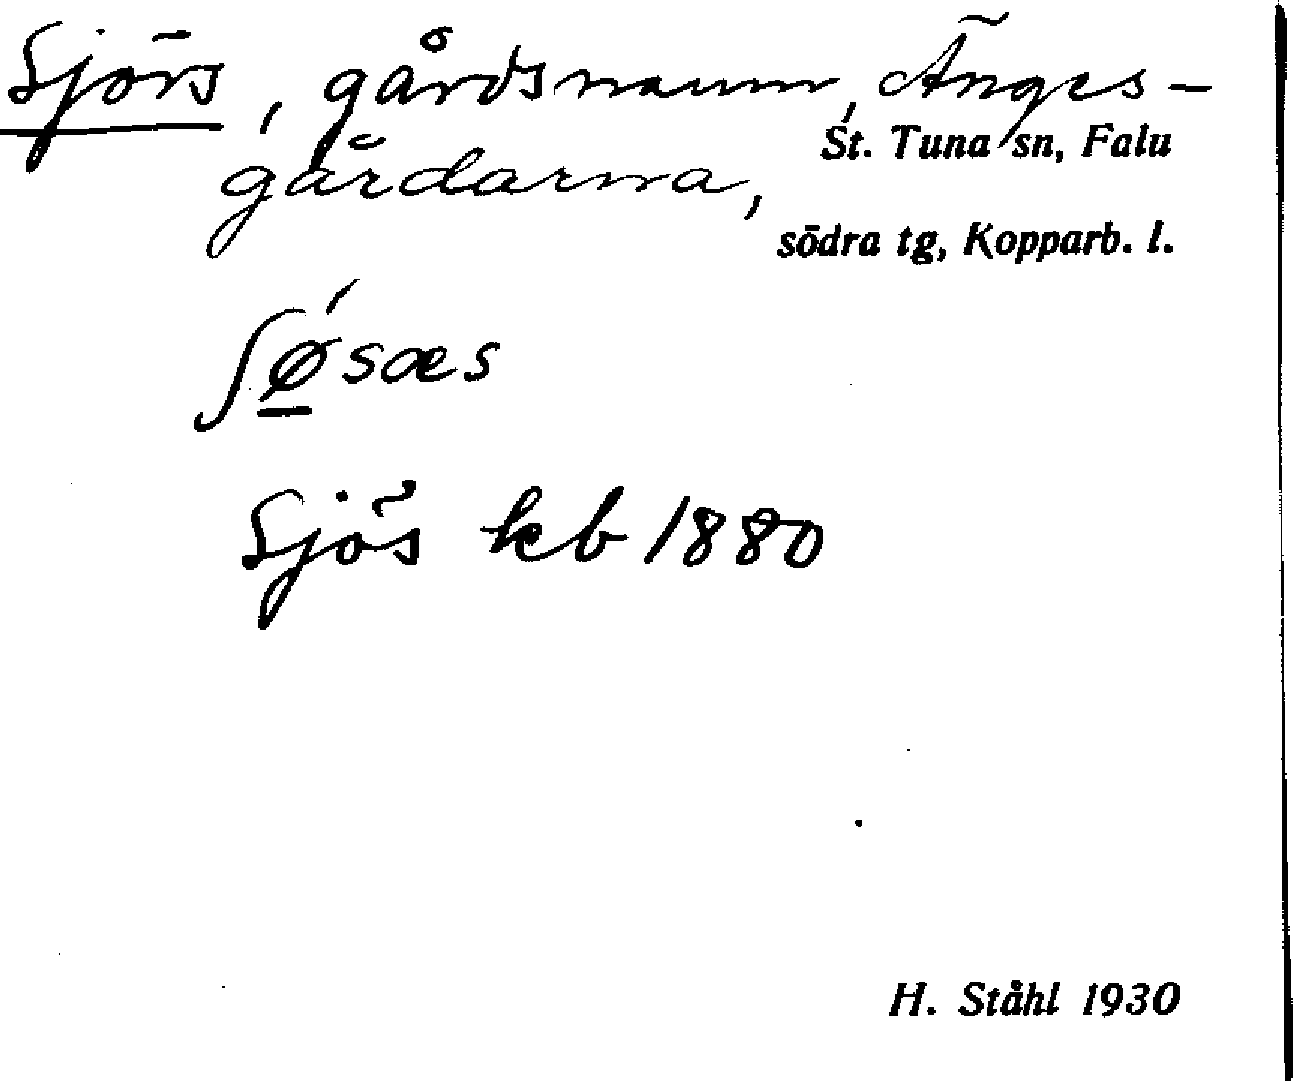 Sjörs, gårdsnamn, Änges-
gårdarna,
St. Tuna sn, Falu
södra tg, Kopparb. l.
ʃǿ̱sæs
Sjös kb 1880
H. Ståhl 1930